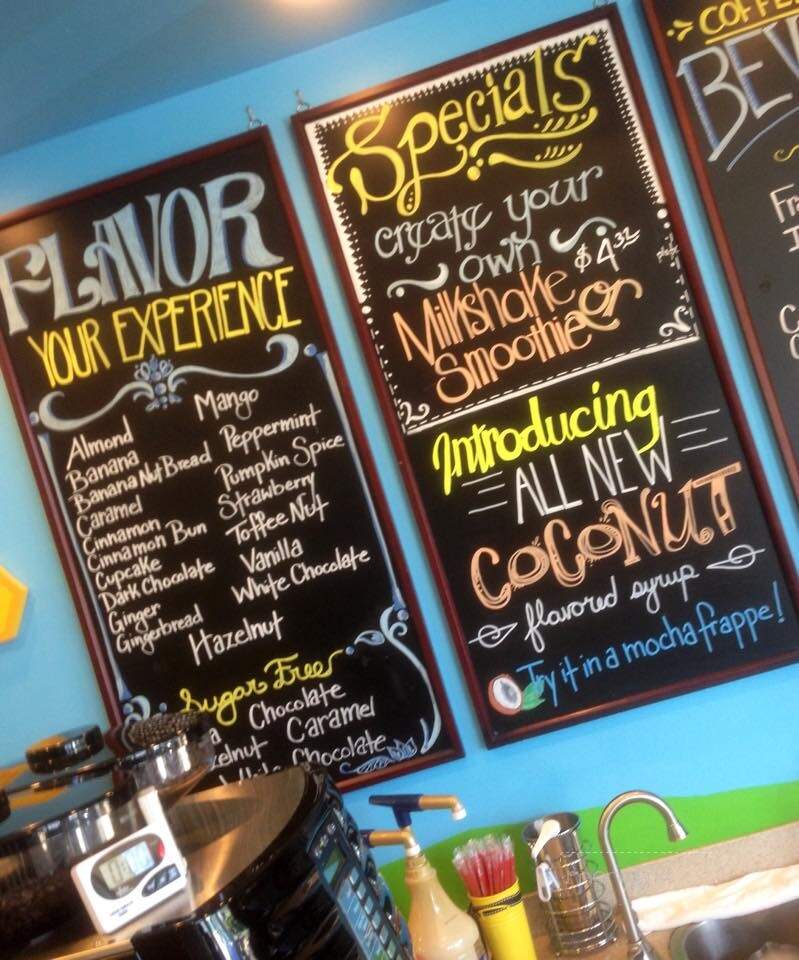 FLAVOR
YOUR EXPERIENCE
Almond
Banana
Banana Nut Bread
Caramel
Cinnamon
Cinnamon Bun
Cupcake
Dark Chocolate
Ginger
Gingerbread
Mango
Peppermint
Pumpkin Spice
Strawberry
Toffee Nut
Vanilla
White Chocolate
Hazelnut
Sugar Free
Chocolate
Caramel
Chocolate
Specials
create your
own
$4.32
Milkshake
or
Smoothie
Introducing
ALL NEW
COCONUT
flavored syrup
Try it in a mocha frappe!